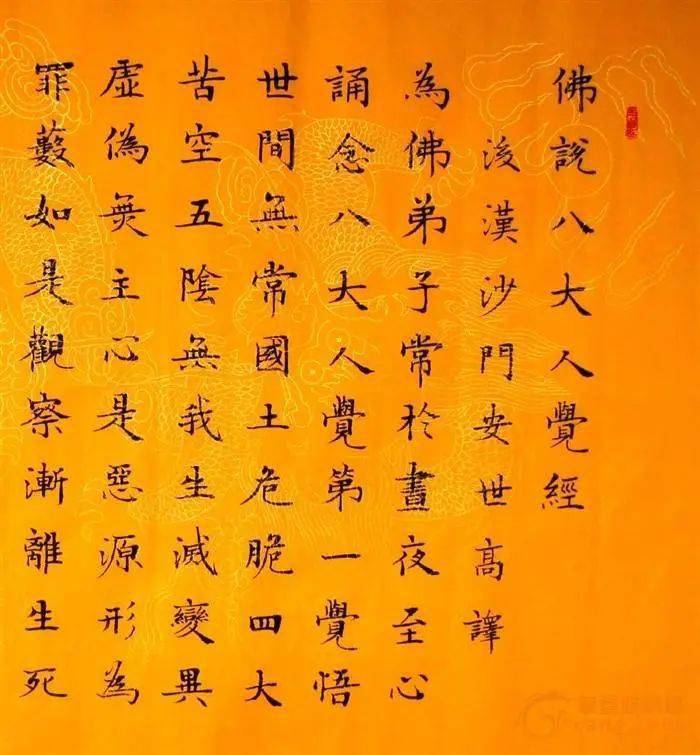 佛説八大人覺經
後漢沙門安世高譯
為佛弟子常於晝夜至心
誦念八大人覺第一覺悟
世間無常國土危脆四大
苦空五陰無我生滅變異
虛偽無主心是惡源形為
罪藪如是觀察漸離生死